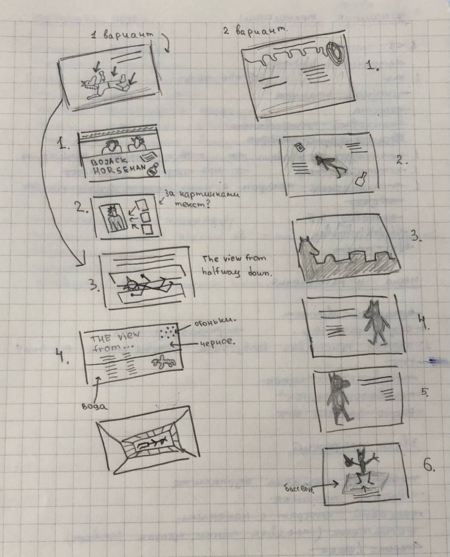 1 вариант
2 вариант.
1.
BOJACK
HORSEMAN
2.
за картинками
текст?
3.
The view from
halfway down.
4.
THE view
from...
огоньки.
чёрное.
вода
1.
2.
3.
4.
5.
6.
бассейн